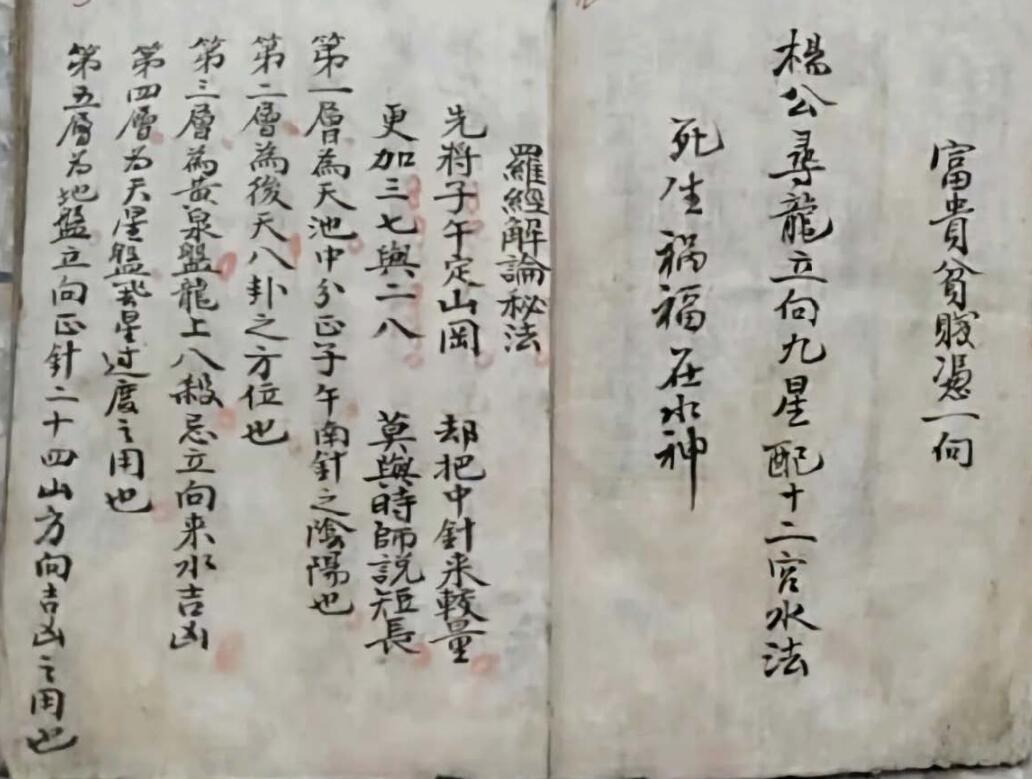 富貴貧賤憑一向
楊公尋龍立向九星配十二宮水法
死生禍福在水神
羅經解論秘法
先將子午定山岡 却把中針来較量
更加三七與二八 莫與時師説短長
第一層為天池中分正子午南針之陰陽也
第二層為後天八卦之方位也
第三層為黃泉盤龍上八殺忌立向来水吉凶
第四層为天星盤飛星过度之用也
第五層为地盤立向正針二十四山方向吉凶之用也